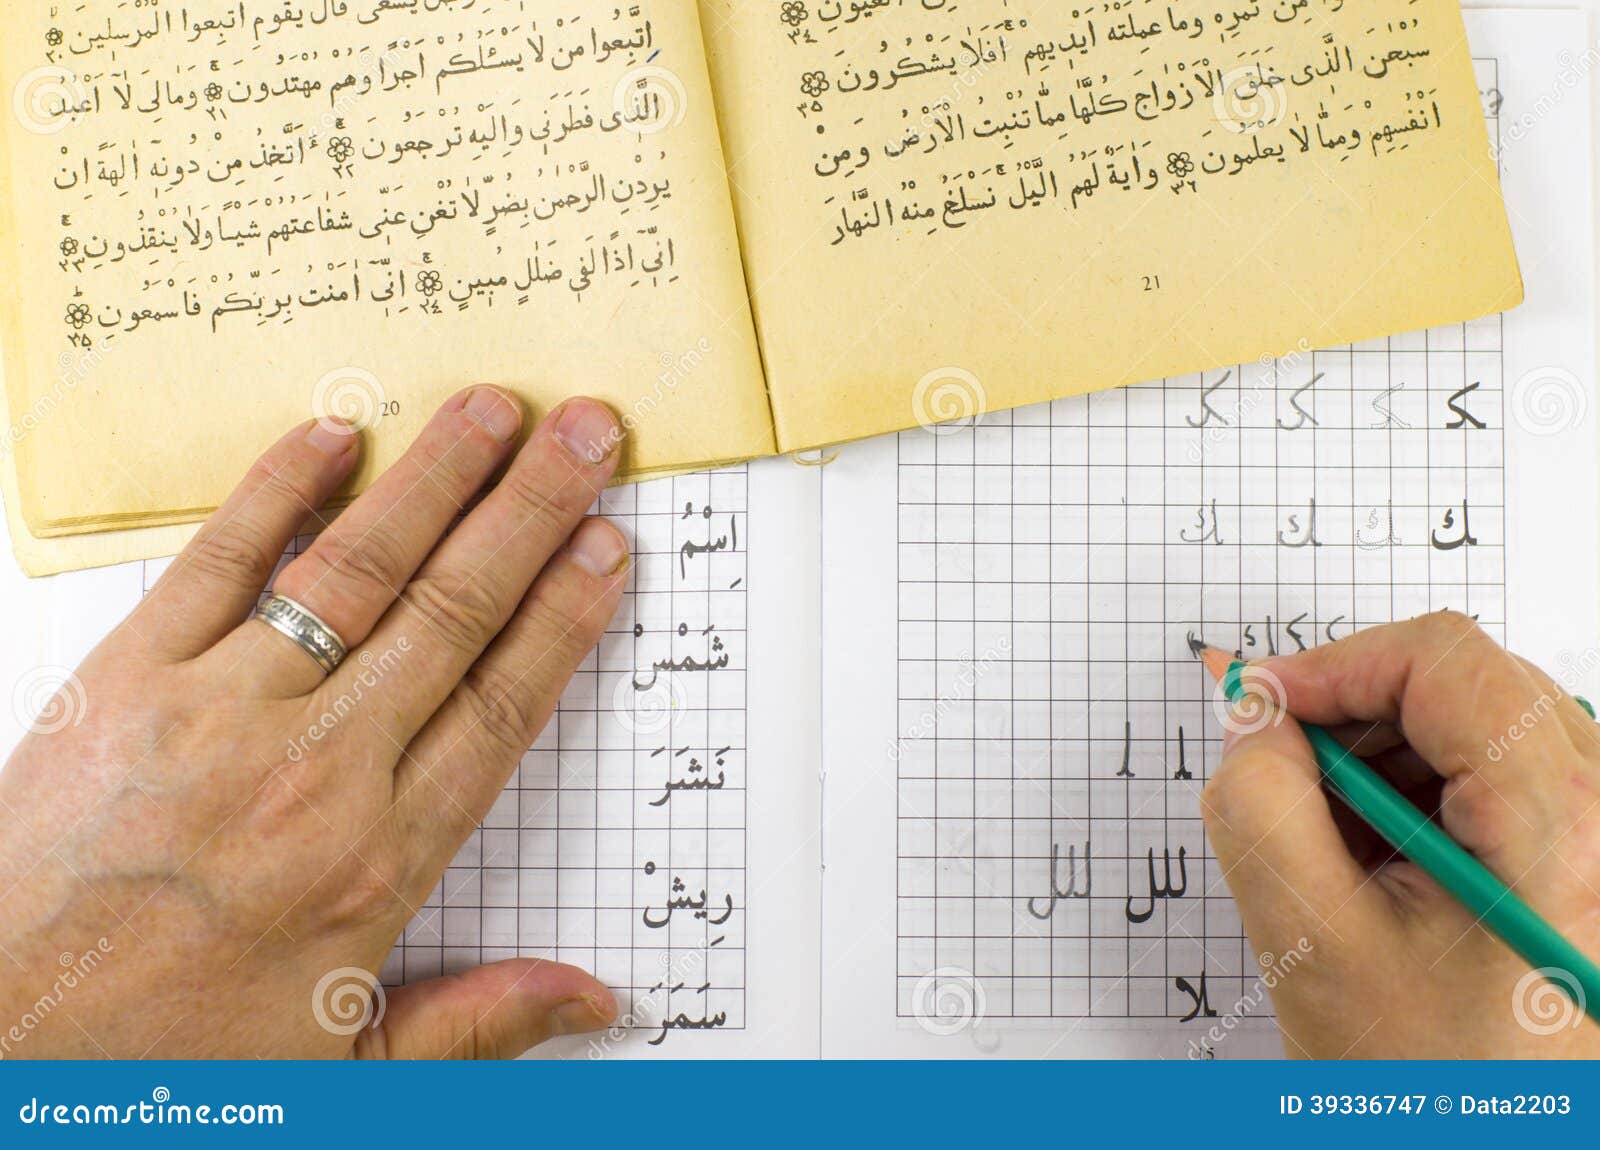 يَسْعٰى قَالَ يٰقَوْمِ اتَّبِعُوا الْمُرْسَلِينَ ٢٠
اِتَّبِعُوا مَنْ لَا يَسْئَلُكُمْ اَجْرًا وَهُمْ مُهْتَدُونَ ٢١ وَمَا لِىَ لَآ اَعْبُدُ
الَّذِى فَطَرَنِى وَاِلَيْهِ تُرْجَعُونَ ٢٢ ءَاَتَّخِذُ مِنْ دُونِهٖٓ اٰلِهَةً اِنْ
يُرِدْنِ الرَّحْمٰنُ بِضُرٍّ لَا تُغْنِ عَنِّى شَفَاعَتُهُمْ شَيْـًٔا وَلَا يُنْقِذُونِ ٢٣
اِنِّىٓ اِذًا لَفِى ضَلٰلٍ مُبِينٍ ٢٤ اِنِّىٓ اٰمَنْتُ بِرَبِّكُمْ فَاسْمَعُونِ ٢٥
20
الْعُيُونِ ٣٤
مِنْ ثَمَرِهٖ وَمَا عَمِلَتْهُ اَيْدِيهِمْ اَفَلَا يَشْكُرُونَ ٣٥
سُبْحٰنَ الَّذِى خَلَقَ الْاَزْوَاجَ كُلَّهَا مِمَّا تُنْبِتُ الْاَرْضُ وَمِنْ
اَنْفُسِهِمْ وَمِمَّا لَا يَعْلَمُونَ ٣٦ وَاٰيَةٌ لَهُمُ الَّيْلُ نَسْلَخُ مِنْهُ النَّهَارَ
21
اِسْمُ
شَمْسْ
نَشَرَ
رِيشْ
سَمَرَ
ﻛ ﻛ ﻛ ﻛ
ك ك ك ك
ا ا
لل لل
لا
15
dreamstime.com
ID 39336747 © Data2203